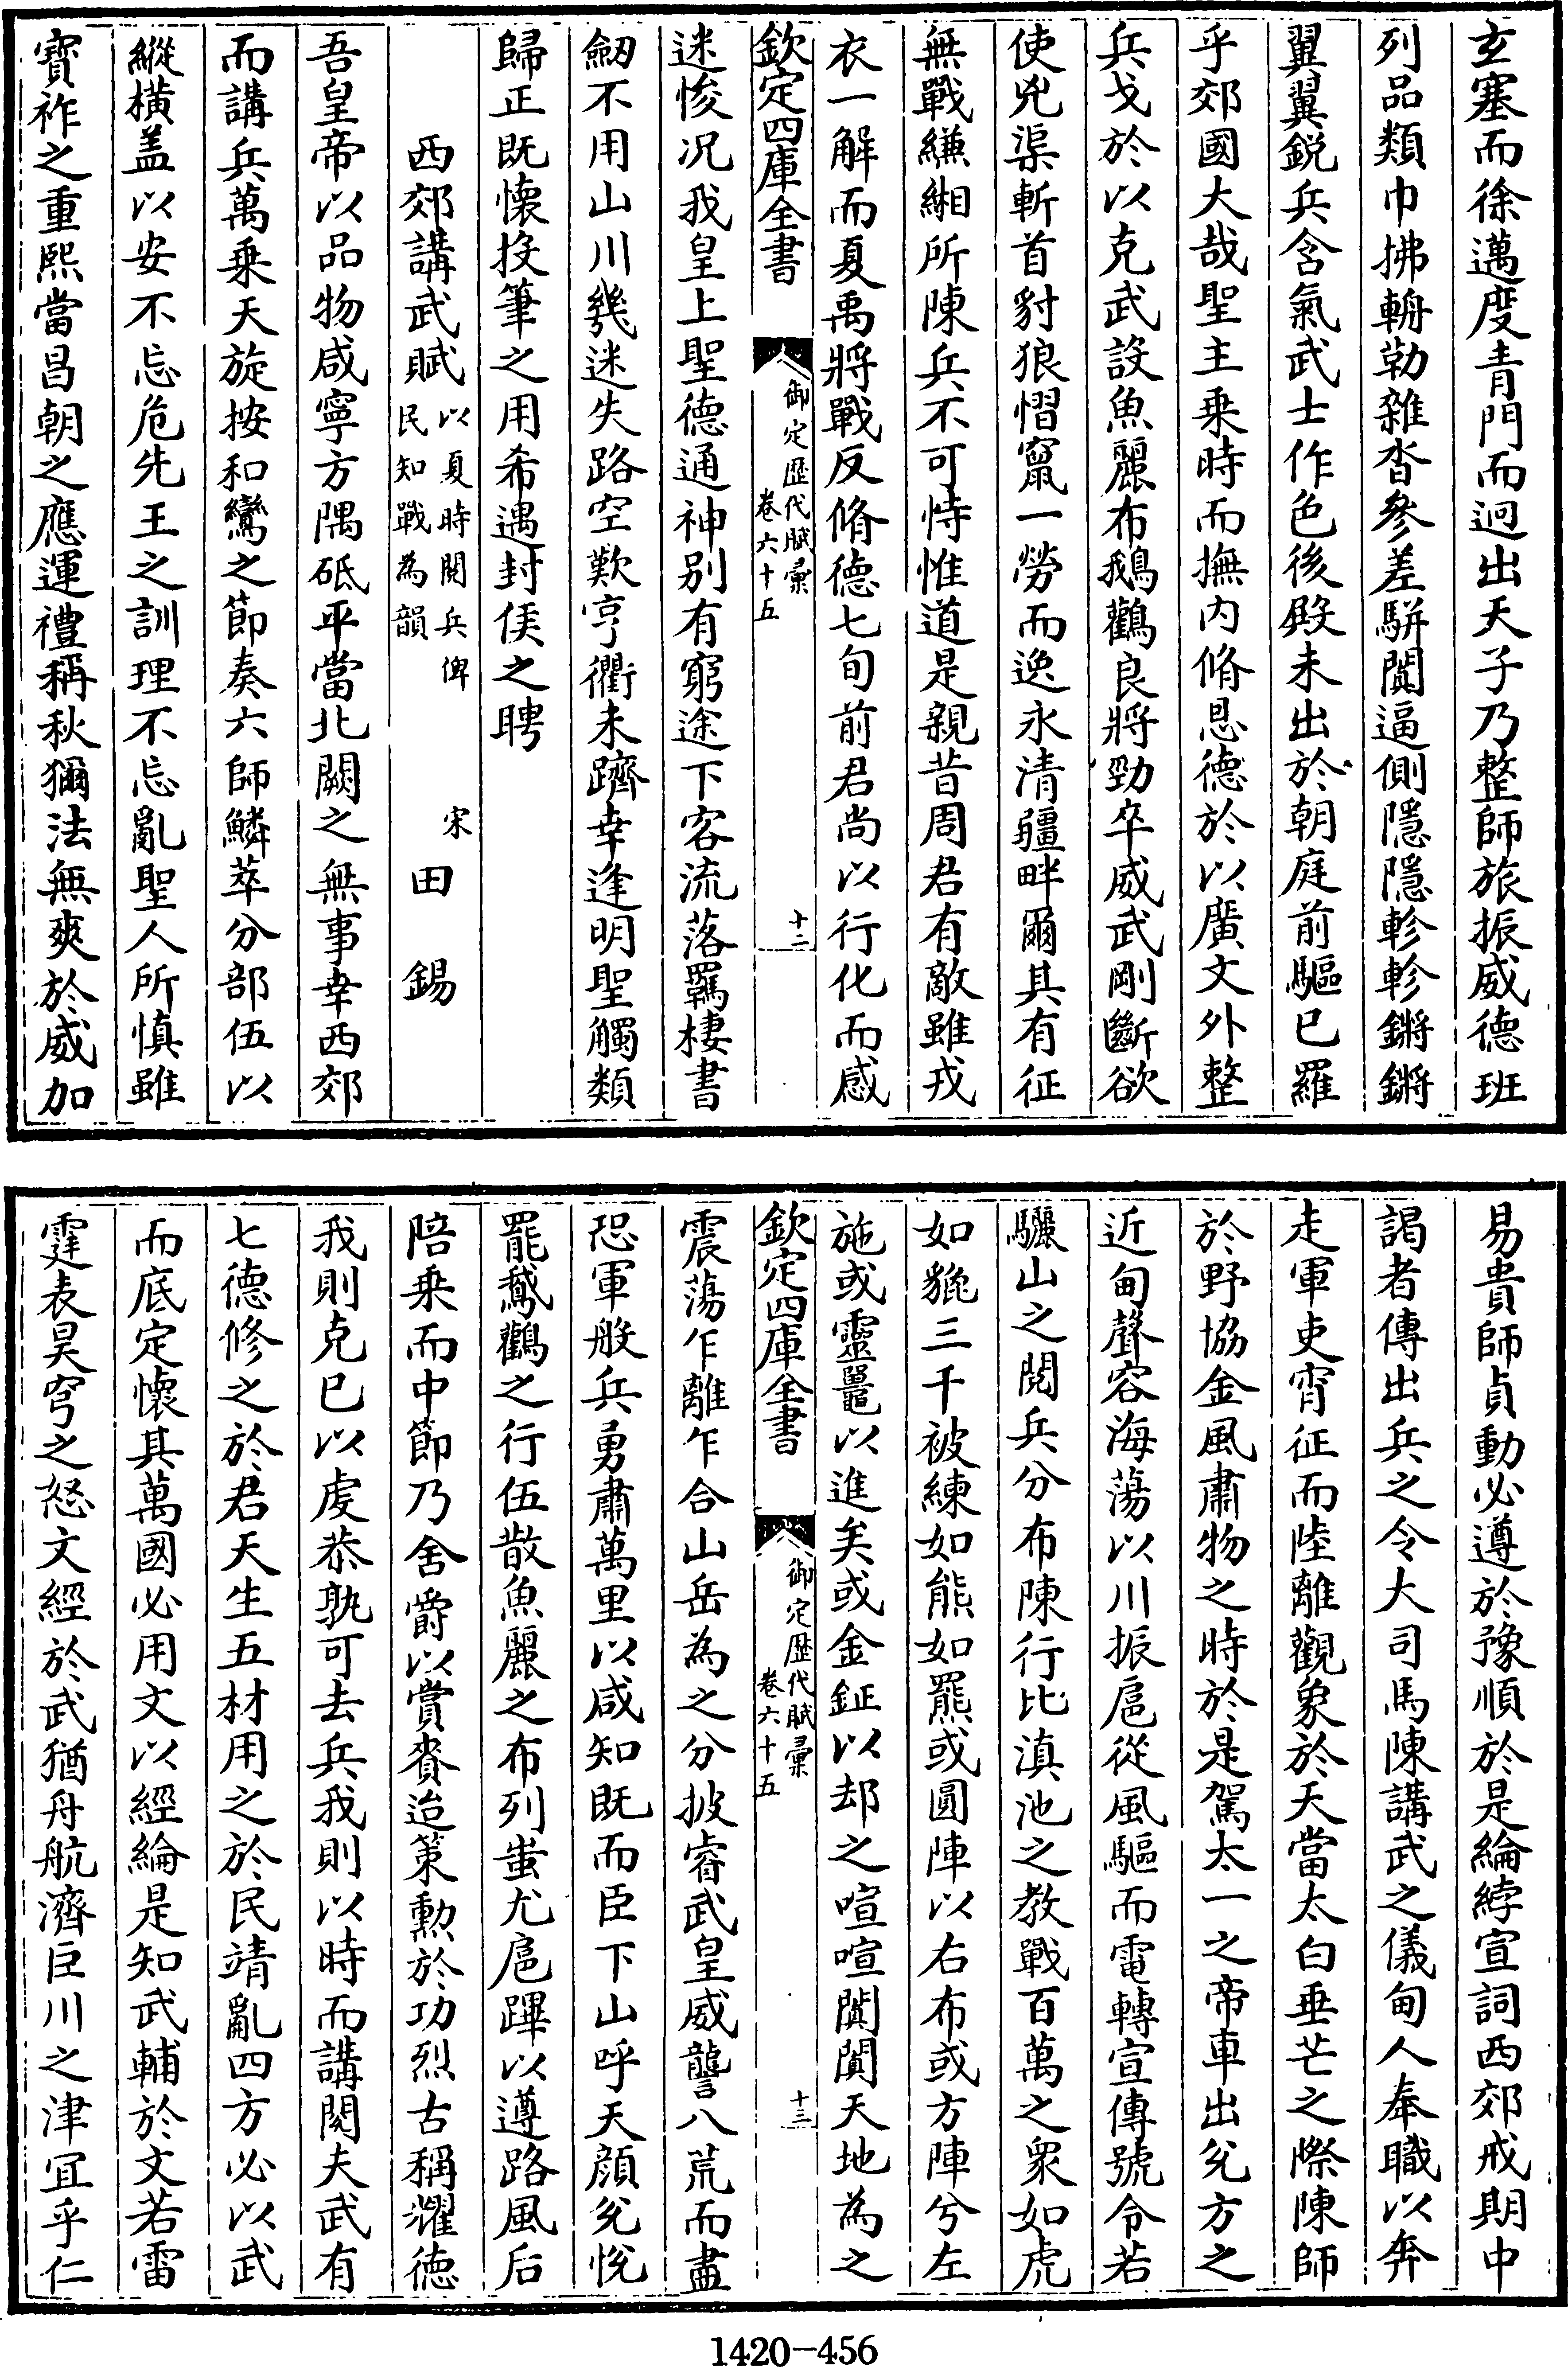 玄塞而徐邁度青門而迥出天子乃整師旅振威德班
列品類巾拂輈勒雜沓參差駢闐逼側隱隱軫軫鏘鏘
翼翼鋭兵含氣武士作色後殿未出於朝庭前驅已羅
乎郊國大哉聖主乗時而撫内脩恩德於以廣文外整
兵戈於以克武設魚麗布鵝鸛良將勁卒威武剛斷欲
使兇渠斬首豺狼慴竄一勞而逸永清疆畔爾其有征
無戰縑緗所陳兵不可恃惟道是親昔周君有敵雖戎
衣一解而夏禹將戰反脩德七旬前君尚以行化而感
欽定四庫全書
御定歴代賦彙
卷六十五
十二
迷悛况我皇上聖德通神别有窮途下客流落羈棲書
劒不用山川幾迷失路空歎亨衢未躋幸逢明聖觸類
歸正既懷投筆之用希遇封侯之聘
西郊講武賦
以夏時閲兵俾
民知戰為韻
宋
田錫
吾皇帝以品物咸寧方隅砥平當北闕之無事幸西郊
而講兵萬乗天旋按和鸞之節奏六師鱗萃分部伍以
縱横盖以安不忘危先王之訓理不忘亂聖人所慎雖
寳祚之重熙當昌朝之應運禮稱秋獮法無爽於威加
易貴師貞動必遵於豫順於是綸綍宣詞西郊戒期中
謁者傳出兵之令大司馬陳講武之儀甸人奉職以奔
走軍吏宵征而陸離觀象於天當太白垂芒之際陳師
於野協金風肅物之時於是駕太一之帝車出兊方之
近甸聲容海蕩以川振扈從風驅而電轉宣傳號令若
驪山之閲兵分布陳行比滇池之教戰百萬之衆如虎
如貔三千被練如熊如羆或圓陣以右布或方陣兮左
施或靈鼉以進矣或金鉦以却之喧喧闐闐天地為之
欽定四庫全書
御定歴代賦彙
卷六十五
十三
震蕩乍離乍合山岳為之分披睿武皇威讋八荒而盡
恐軍般兵勇肅萬里以咸知既而臣下山呼天顔兊悦
罷鸛鸛之行伍散魚麗之布列蚩尤扈蹕以遵路風后
陪乗而中節乃舍爵以賞賚迨策勲於功烈古稱燿德
我則克已以䖍恭孰可去兵我則以時而講閲夫武有
七德修之於君天生五材用之於民靖亂四方必以武
而底定懷其萬國必用文以經綸是知武輔於文若雷
霆表昊穹之怒文經於武猶舟航濟巨川之津宜乎仁
1420-456